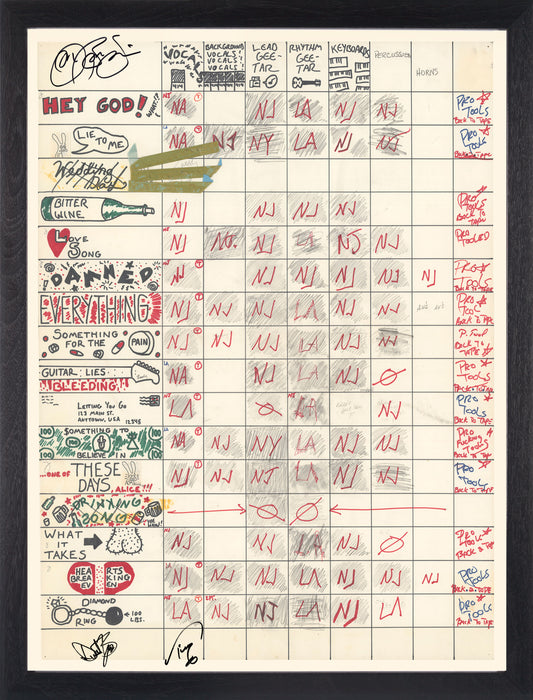 VOCALS
BACKGROUND VOCALS! VOCALS! VOCALS!
LEAD GEE-TAR
RHYTHM GEE-TAR
KEYBOARDS
PERCUSSION
HORNS
HEY GOD! NA NJ LA NJ NJ PRO TOOLS BACK TO TAPE
LIE TO ME NA NJ NY LA NJ NJ PRO TOOLS BACK TO TAPE
Wedding Day
BITTER WINE NJ NJ NJ NJ PRO TOOLS BACK TO TAPE
LOVE SONG NJ NJ LJ LA NJ NJ PRO TOOLED
DAMNED NJ NJ NJ NJ NJ NJ PRO TOOLS BACK TO TAPE
EVERYTHING NJ NJ NJ LA NJ NJ PRO TOOL BACK TO TAPE
SOMETHING FOR THE PAIN NJ NJ NJ LA NJ NJ BACK TO TAPE
GUITAR LIES BLEEDING NA NJ LA NJ Ø PRO TOOLS BACK TO TAPE
LETTING YOU GO
123 MAIN ST.
ANYTOWN, USA
12345 LA Ø LA NJ PRO TOOLS BACK TO TAPE
100 SOMETHING TO BELIEVE IN 100 NA NJ NY LA NJ NA PRO FUCKING TOOLS BACK TO TAPE
...ONE OF THESE DAYS, ALICE!!! NJ NJ NJ LA NJ NJ PRO TOOLS BACK TO TAPE
DRINKING SONG Ø Ø
WHAT IT TAKES NJ NJ LA NJ Ø PRO TOOLS BACK TO TAPE
HEARTS BREAKING EVEN NJ NJ NJ LA NJ NJ NJ PRO TOOLS BACK TO TAPE
DIAMOND RING ←100 LBS. LA NJ NJ LA NJ LA PRO TOOLS BACK TO TAPE